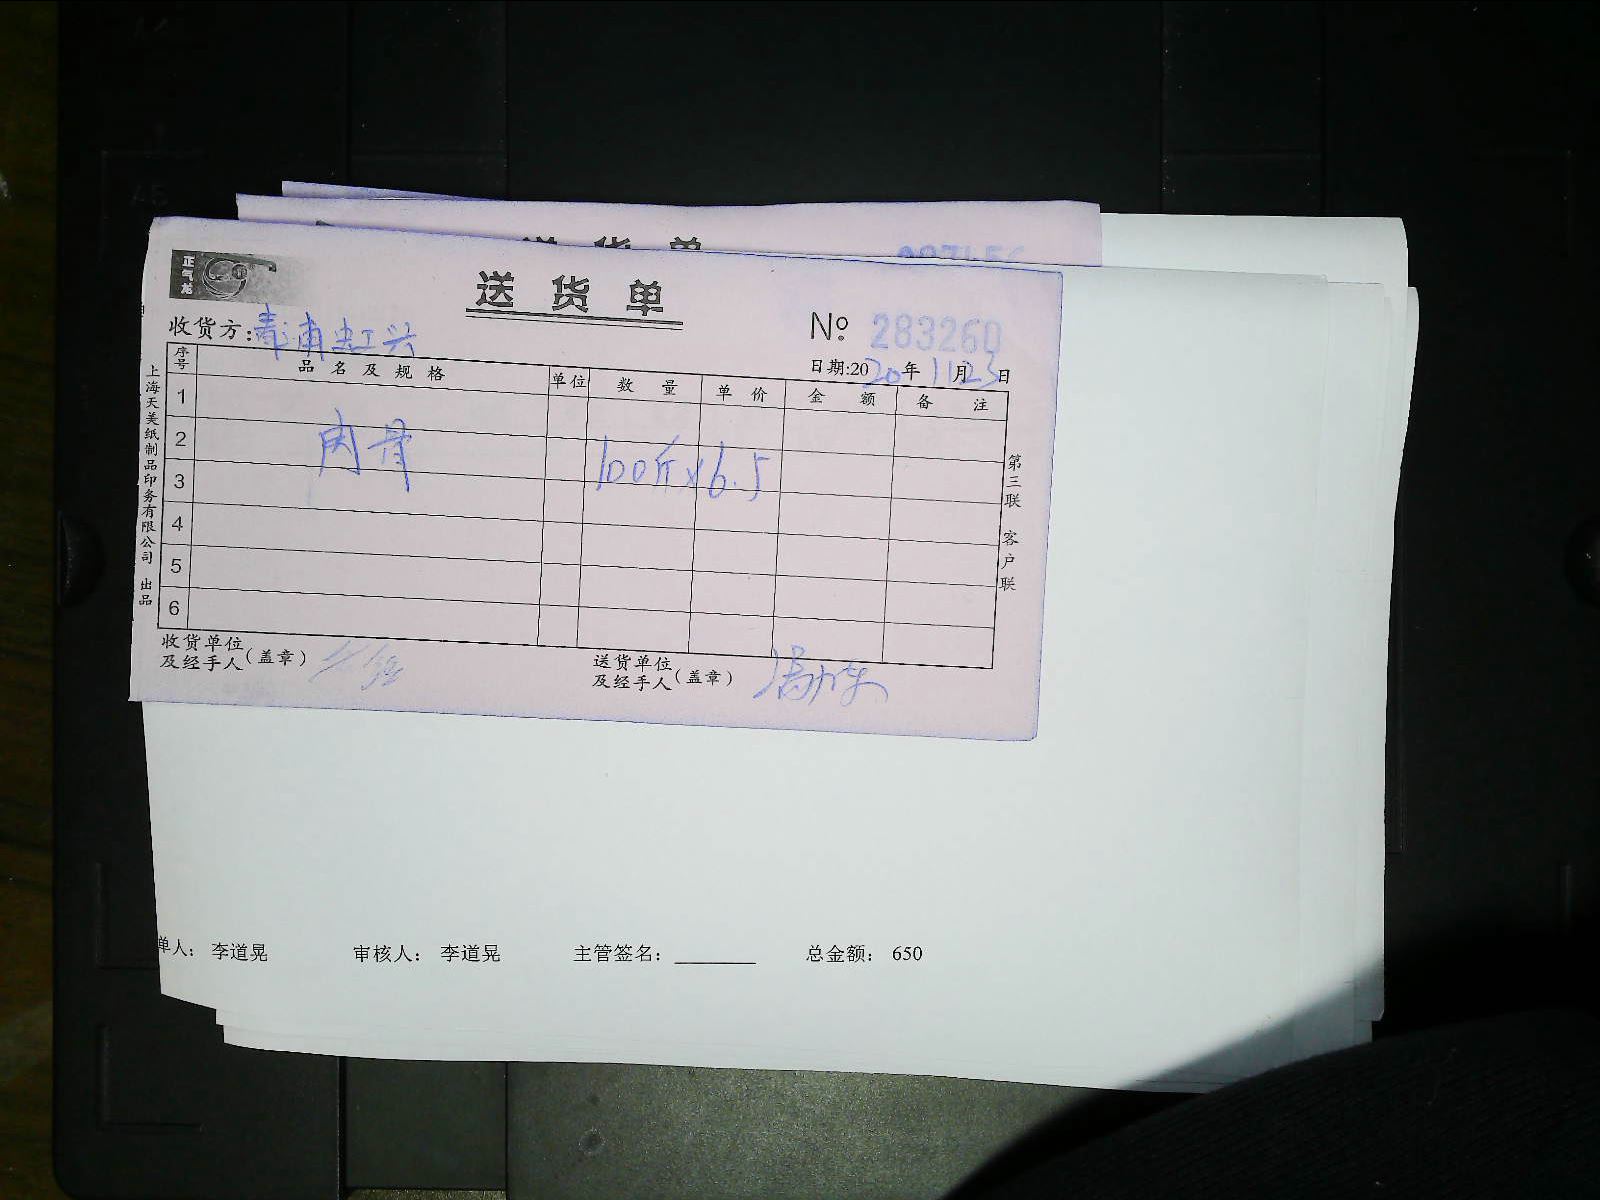 送货单
正气龙
送货单
№: 283260
收货方:青浦忠江兴
日期:2020年11月23日
序号 品名及规格 单位 数量 单价 金额 备注
1
2
肉骨 100斤×6.5
3
4
5
6
上海天美纸制品印务有限公司 出品
第三联 客户联
收货单位及经手人(盖章)
送货单位及经手人(盖章)
单人: 李道晃 审核人: 李道晃 主管签名: 总金额: 650